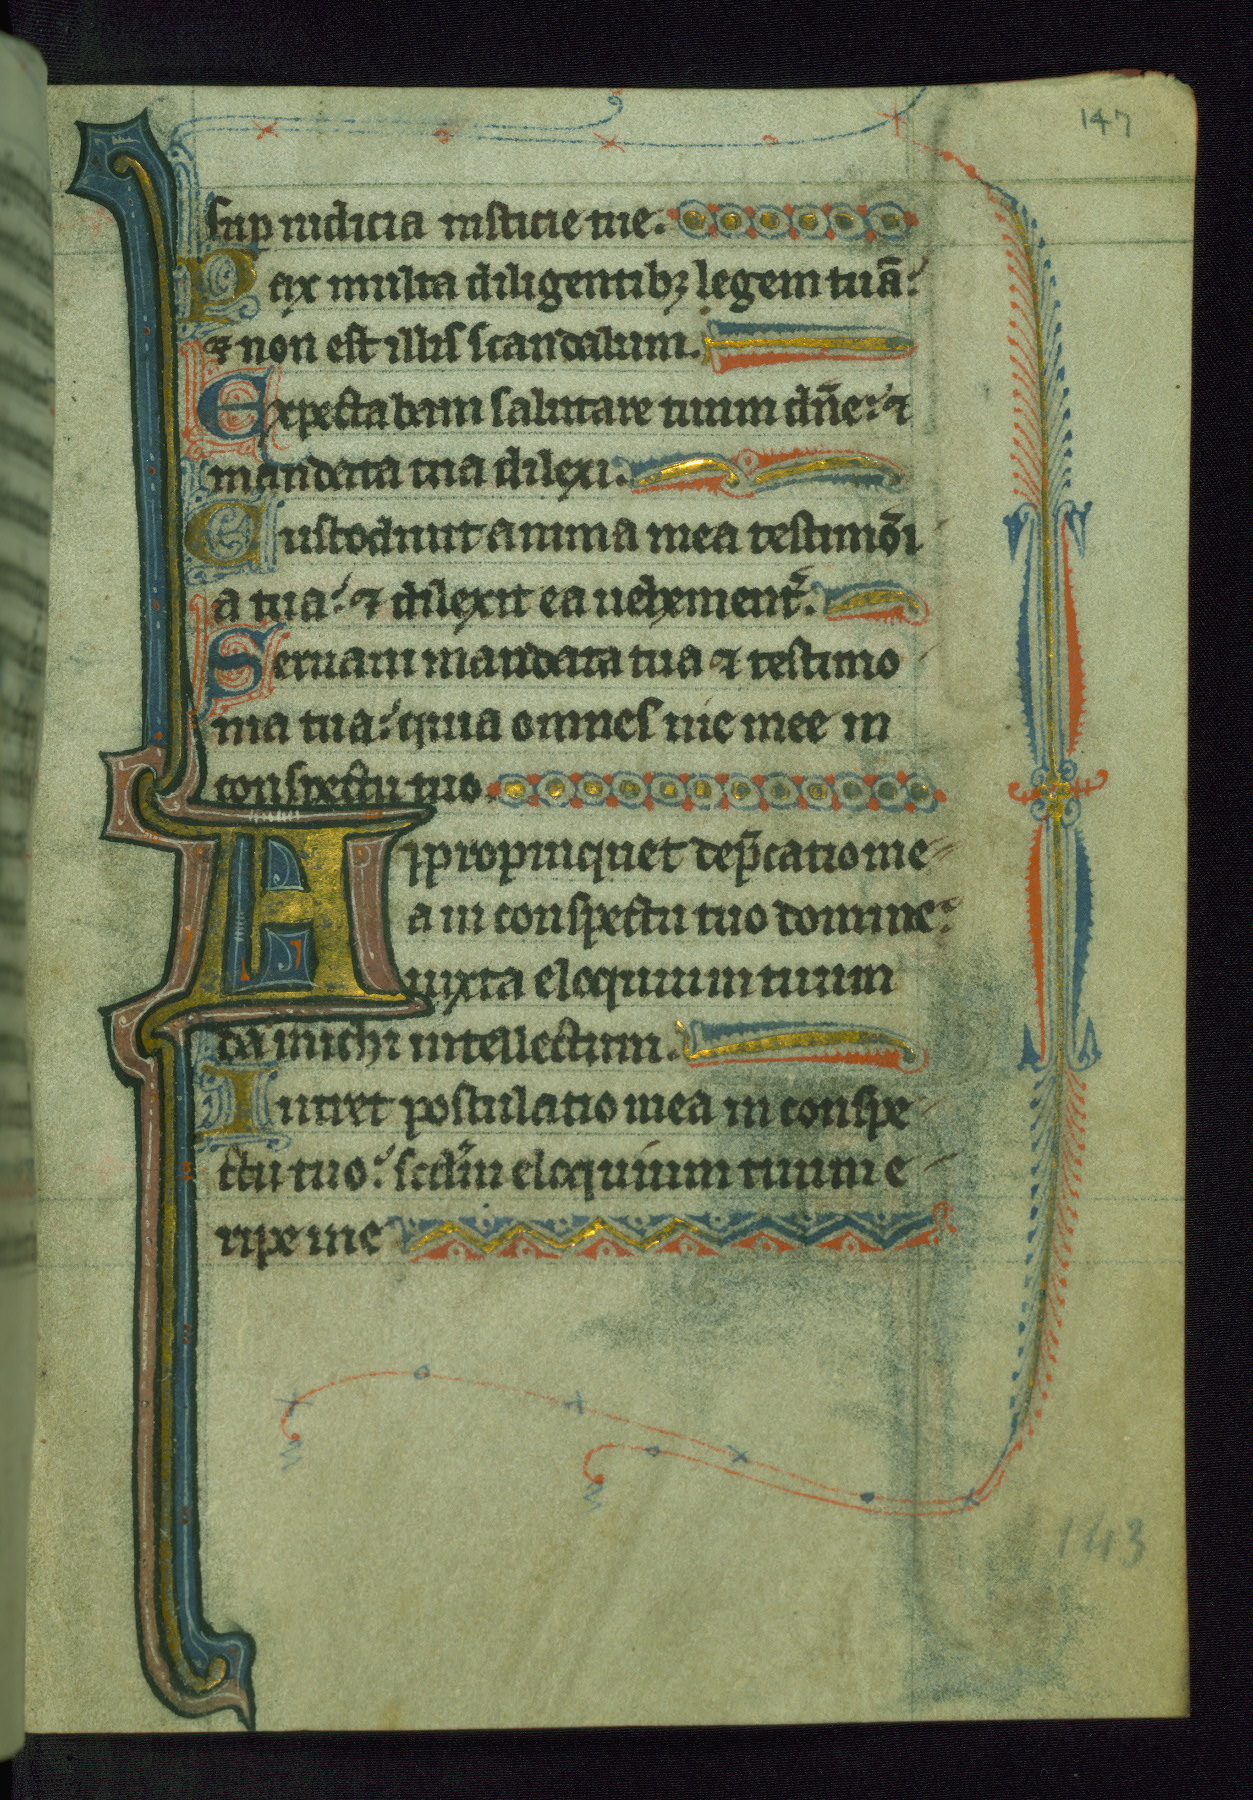 147
sup iudicia iusticie tue.
Pax multa diligentibꝫ legem tuā:
⁊ non est illis scandalum.
Expectabam salutare tuum dn̄e: ⁊
mandata tua dilexi.
Custodiuit anima mea testimōi
a tua: ⁊ dilexit ea uehement᷑.
Seruaui mandata tua ⁊ testimo
nia tua: quia omnes uie mee in
conspectu tuo.
Appropinquet dep̄catio me
a in conspectu tuo domine:
iuxta eloquium tuum
da michi intellectum.
Intret postulatio mea in conspe
ctu tuo: scd̄m eloquium tuum e
ripe me
143